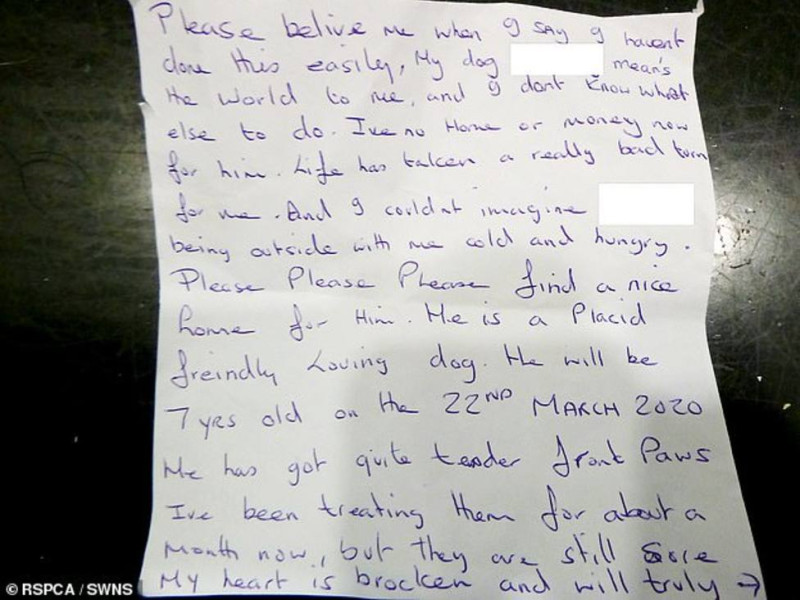 Please belive me when I say I havent
done this easily, My dog means
the world to me, and I dont know what
else to do. Ive no Home or money now
for him. Life has taken a really bad turn
for me. And I couldnt imagine
being outside with me cold and hungry.
Please Please Please find a nice
home for Him. He is a Placid
freindly Loving dog. He will be
7 yrs old on the 22ND MARCH 2020
He has got quite tender front Paws
Ive been treating them for about a
Month now, but they are still Sore
My heart is brocken and will truly →
© RSPCA / SWNS